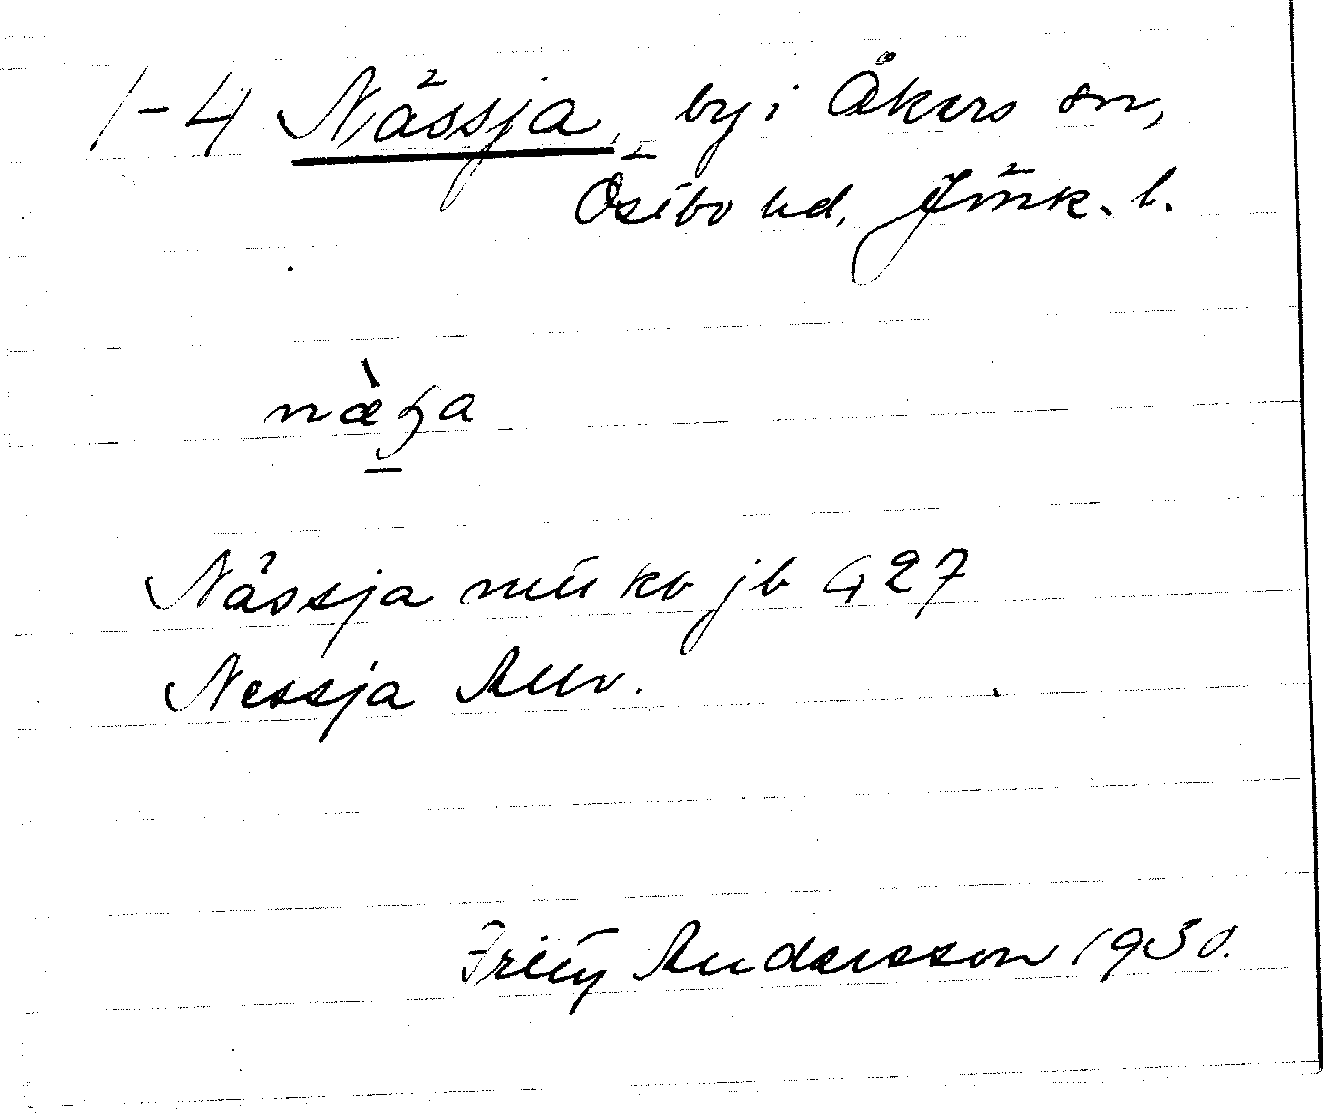 1-4 Nässja, by i Åkers sn,
Östbo hd, Jönk. l.
Nässja mtl ko jb 427
Nessja Allv.
Fritz Andersson 1930.